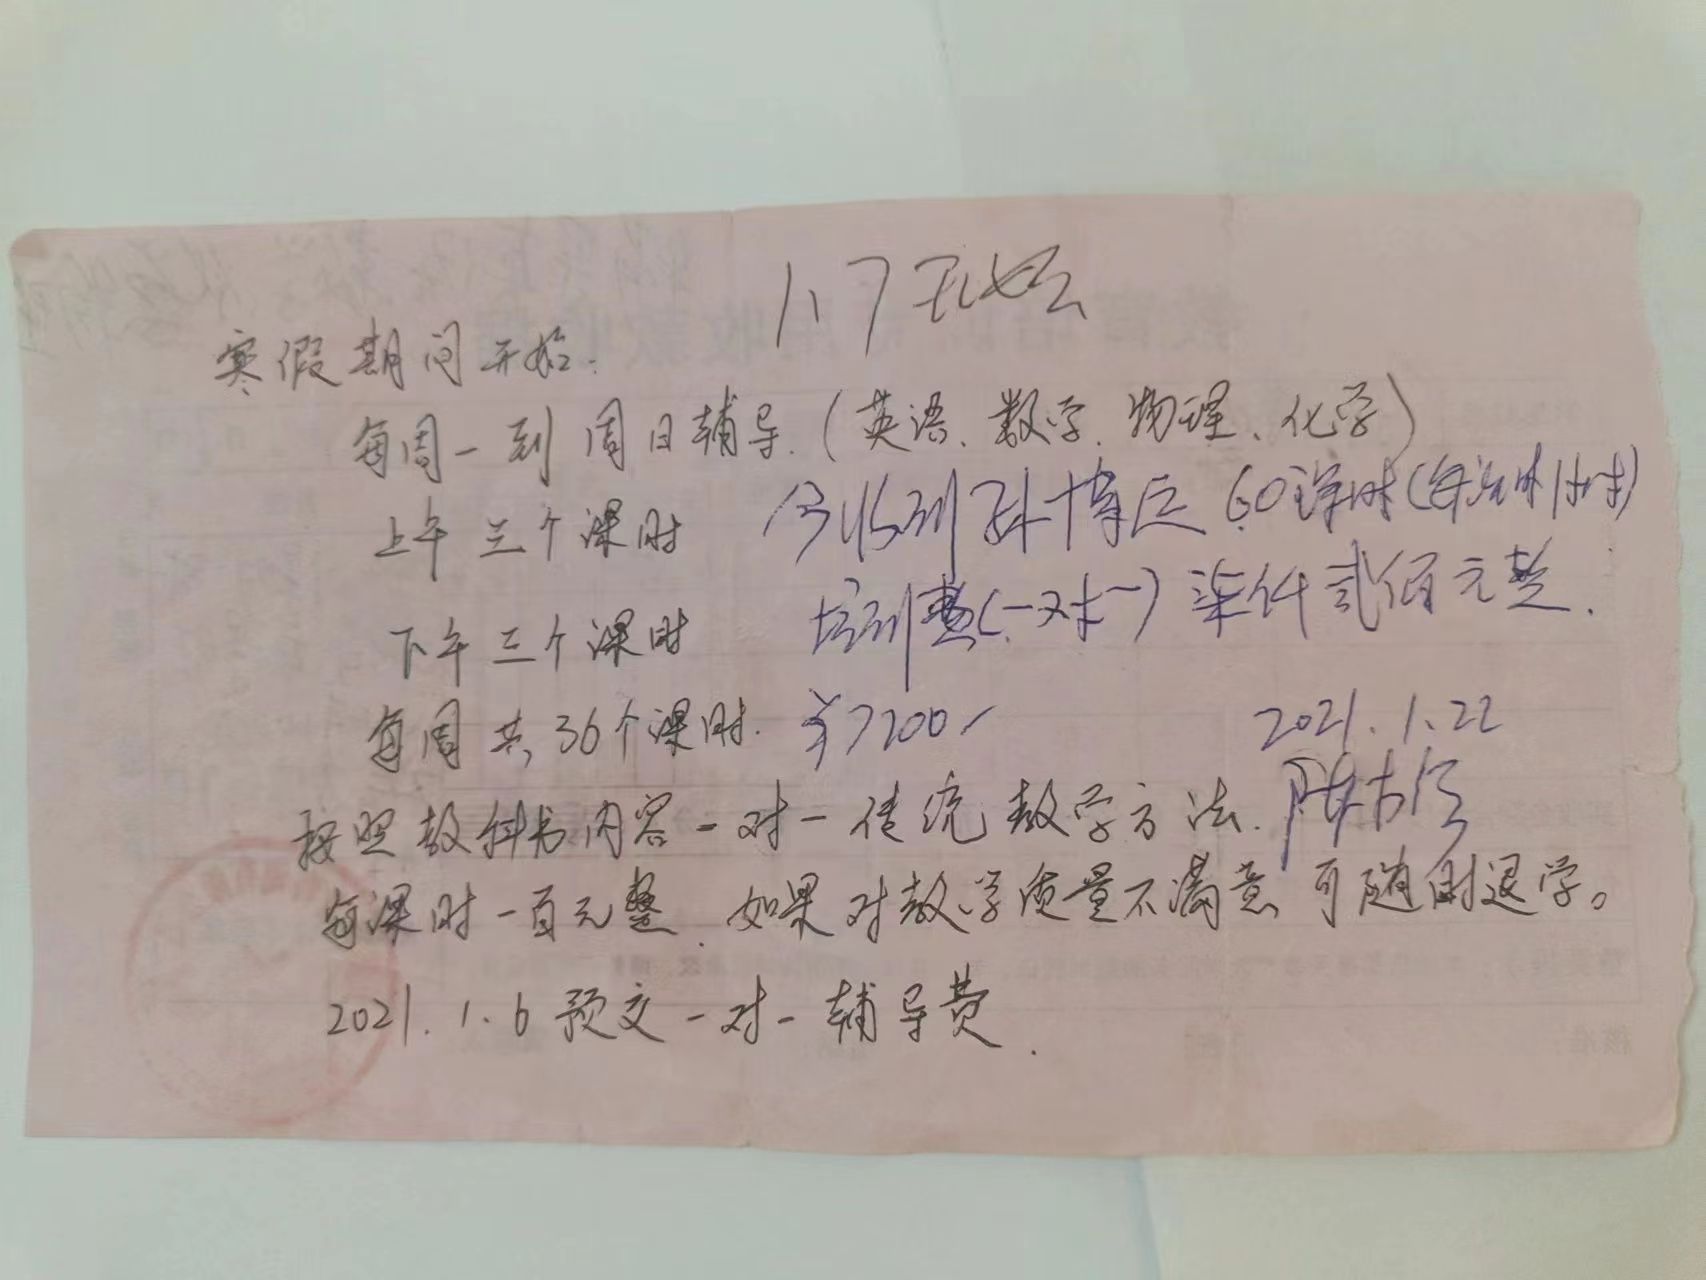 1.7 开始
寒假期间开始:
每周一到周日辅导.(英语、数学、物理、化学)
上午三个课时
今收到孙博臣 60课时(每课时1小时)
下午三个课时
培训费(一对一) 柒仟贰佰元整.
每周共36个课时.
￥7200/
2021.1.22
按照教科书内容一对一传统教学方法.
每课时一百元整.如果对教学质量不满意可随时退学。
2021.1.6 预交一对一辅导费.